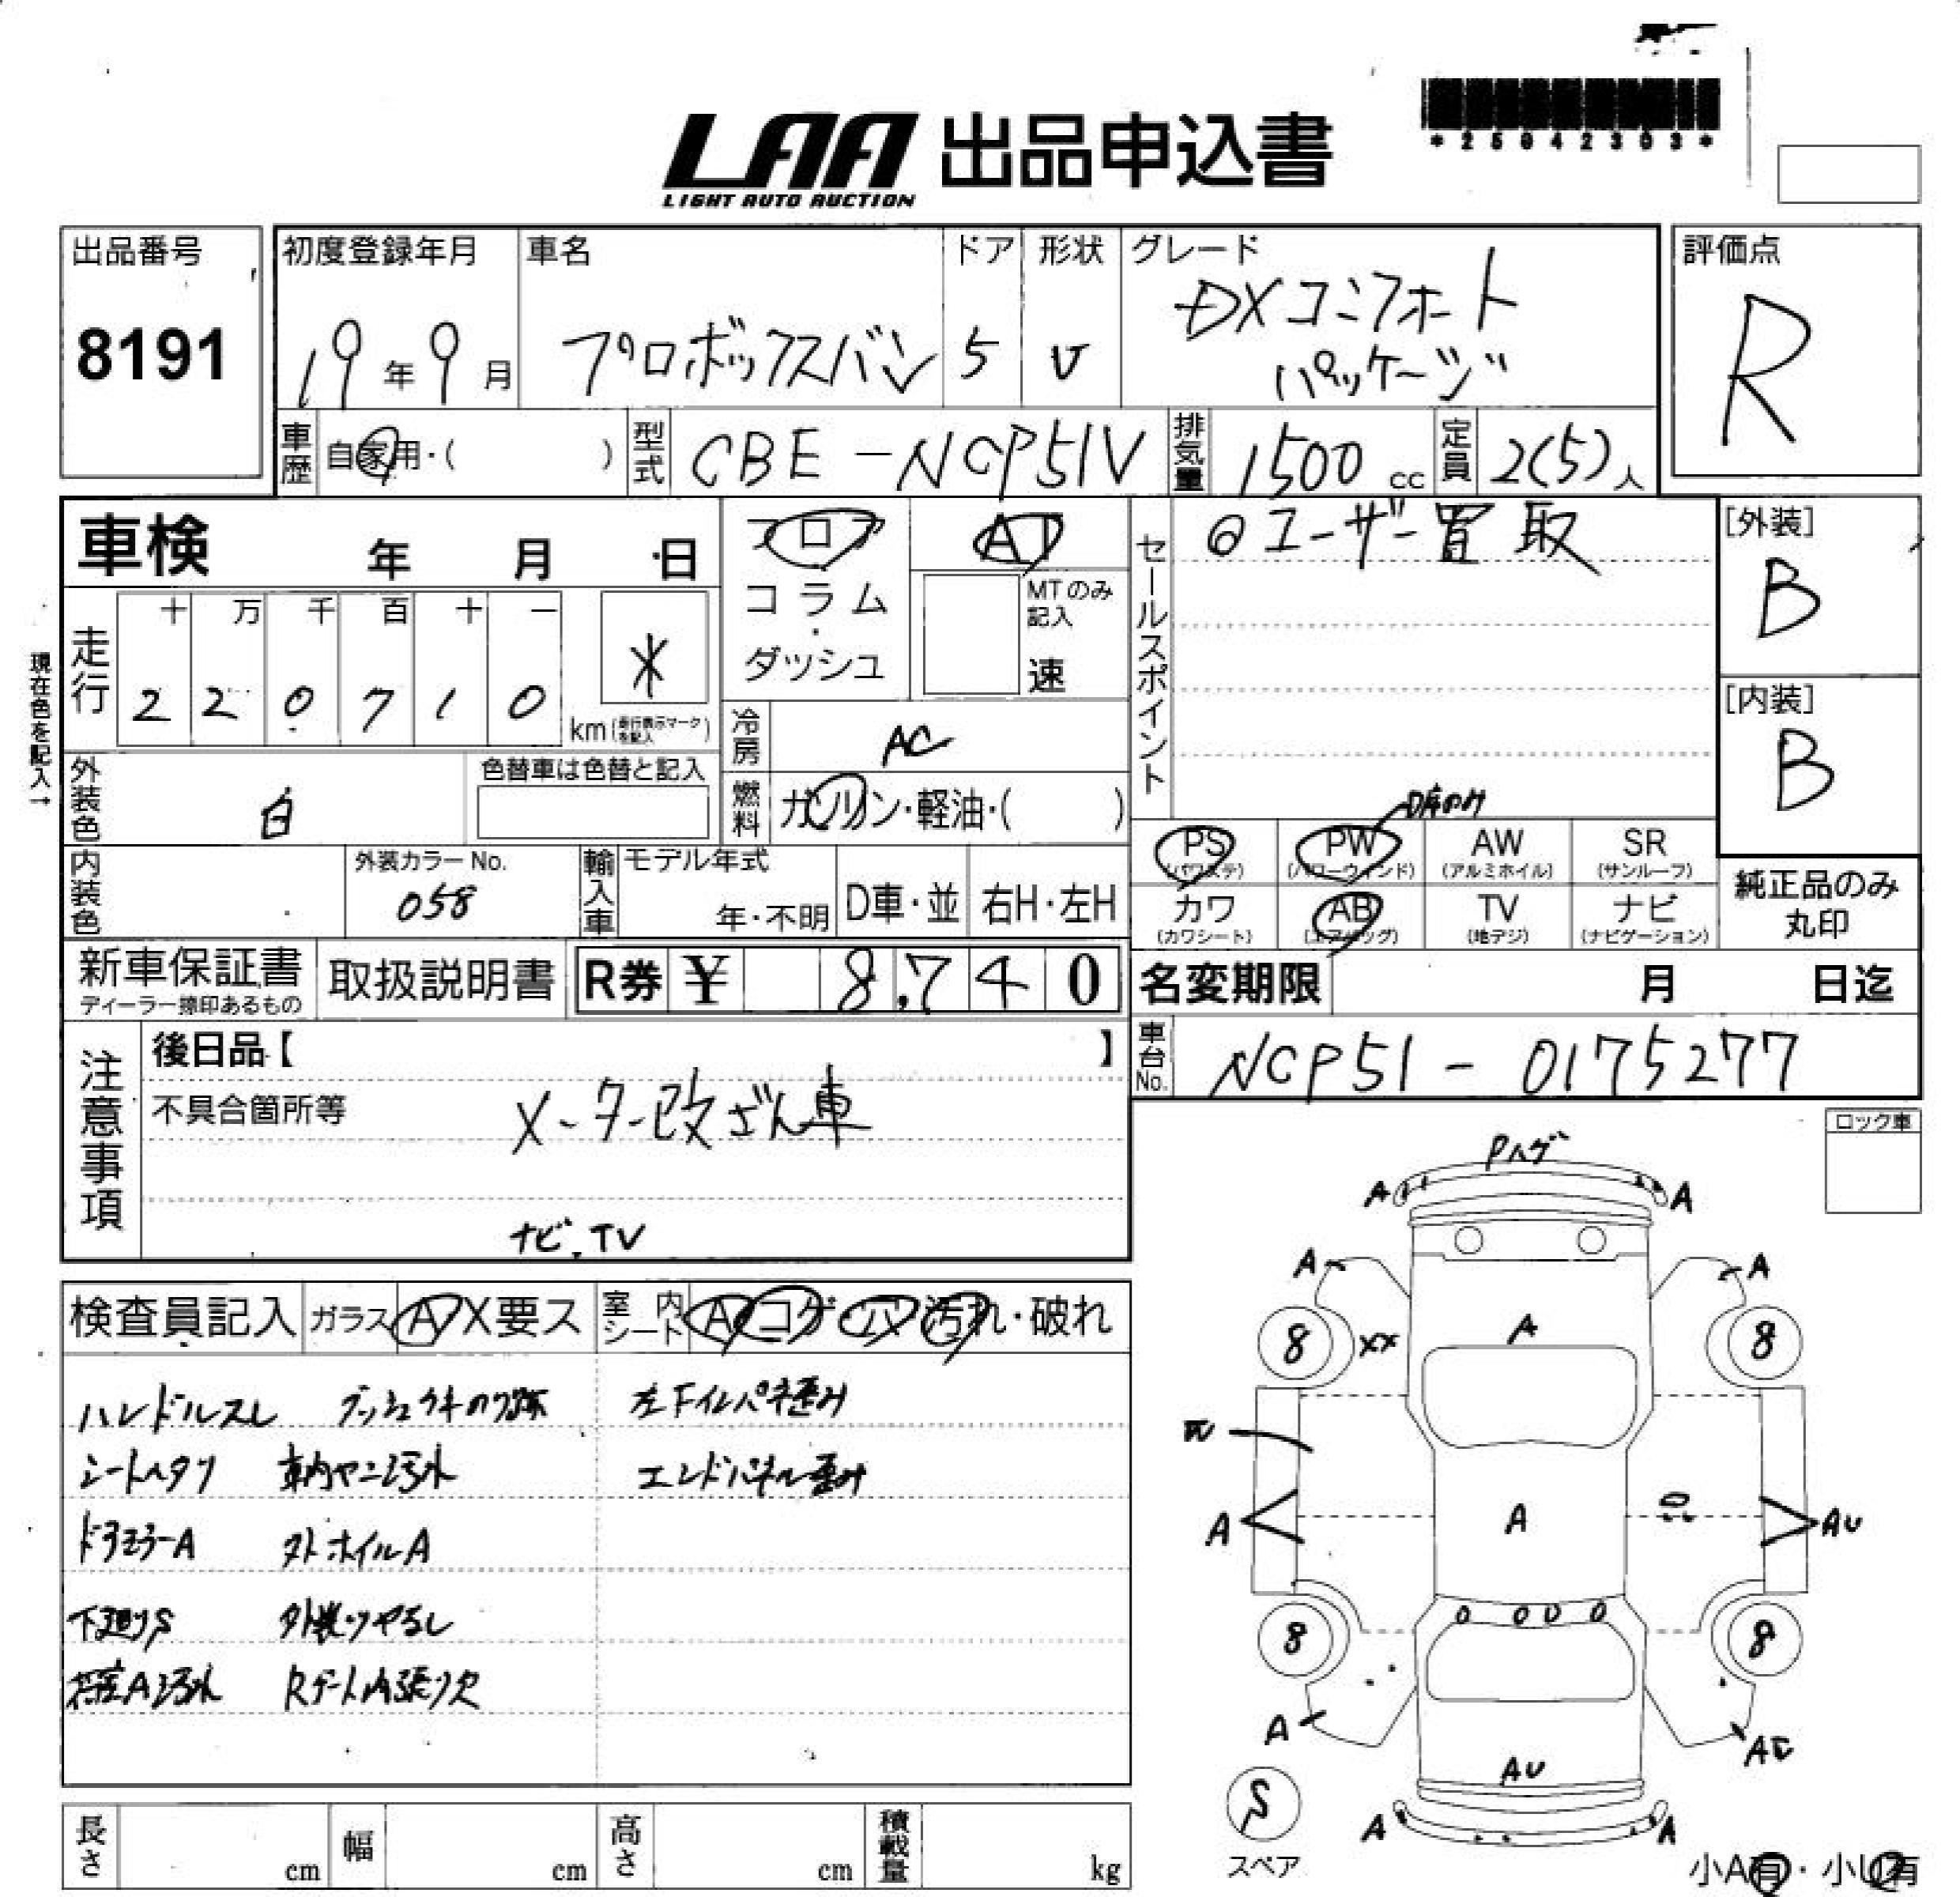 LAA 出品申込書
LIGHT AUTO AUCTION
*25042303*
出品番号
8191
初度登録年月
19年9月
車名
プロボックスバン
ドア
5
形状
V
グレード
DXコンフォート
パッケージ
評価点
R
車歴
自家用・( )
型式
CBE-NCP51V
排気量
1500 cc
定員
2(5)人
車検 年 月 日
フロア
コラム
・
ダッシュ
AT
MTのみ
記入
速
セールスポイント
◎ユーザー買取
[外装]
B
[内装]
B
現在色を記入→
走行
十 万 千 百 十 一
2 2 0 7 1 0
km (走行表示マークを記入)
*
冷房
AC
燃料
ガソリン・軽油・( )
外装色
白
色替車は色替と記入
内装色
外装カラーNo.
058
輸入車
モデル年式
年・不明
D車・並
右H・左H
D席のみ
PS
(パワステ)
PW
(パワーウィンド)
AW
(アルミホイル)
SR
(サンルーフ)
カワ
(カワシート)
AB
(エアバッグ)
TV
(地デジ)
ナビ
(ナビゲーション)
純正品のみ
丸印
新車保証書
ディーラー捺印あるもの
取扱説明書
R券 ¥ 8,740
名変期限 月 日迄
車台No.
NCP51-0175277
注意事項
後日品【 】
不具合箇所等
メーター改ざん車
ナビ.TV
ロック車
検査員記入
ガラス
A X要ス
室内
シート
A コゲ 穴 汚れ・破れ
ハンドルスレ
左Fインパネ歪み
シートヘタリ
車内ヤニ汚れ
エンドパネル歪み
ドアミラーA
外ホイルA
下廻りS
外装ツヤなし
荷室A汚れ
Rゲート内張り欠
Pハゲ
A A
A A
8 XX A 8
A A AU
8 8
A
AU
S
A A
スペア
小A有・小U有
長さ cm
幅 cm
高さ cm
積載量 kg